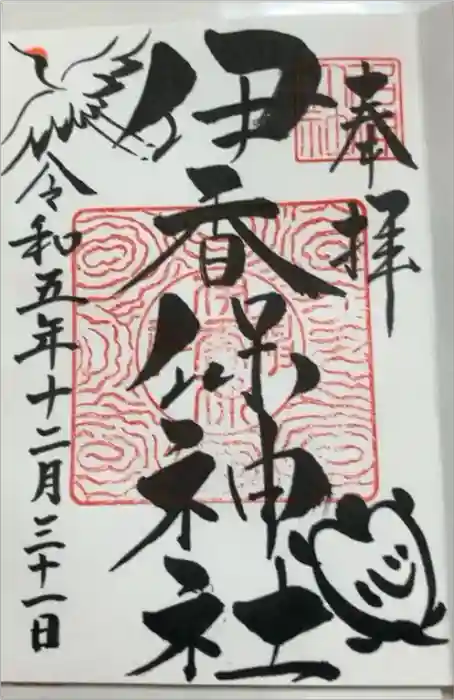 奉拝
伊香保神社
令和五年十二月三十一日
心